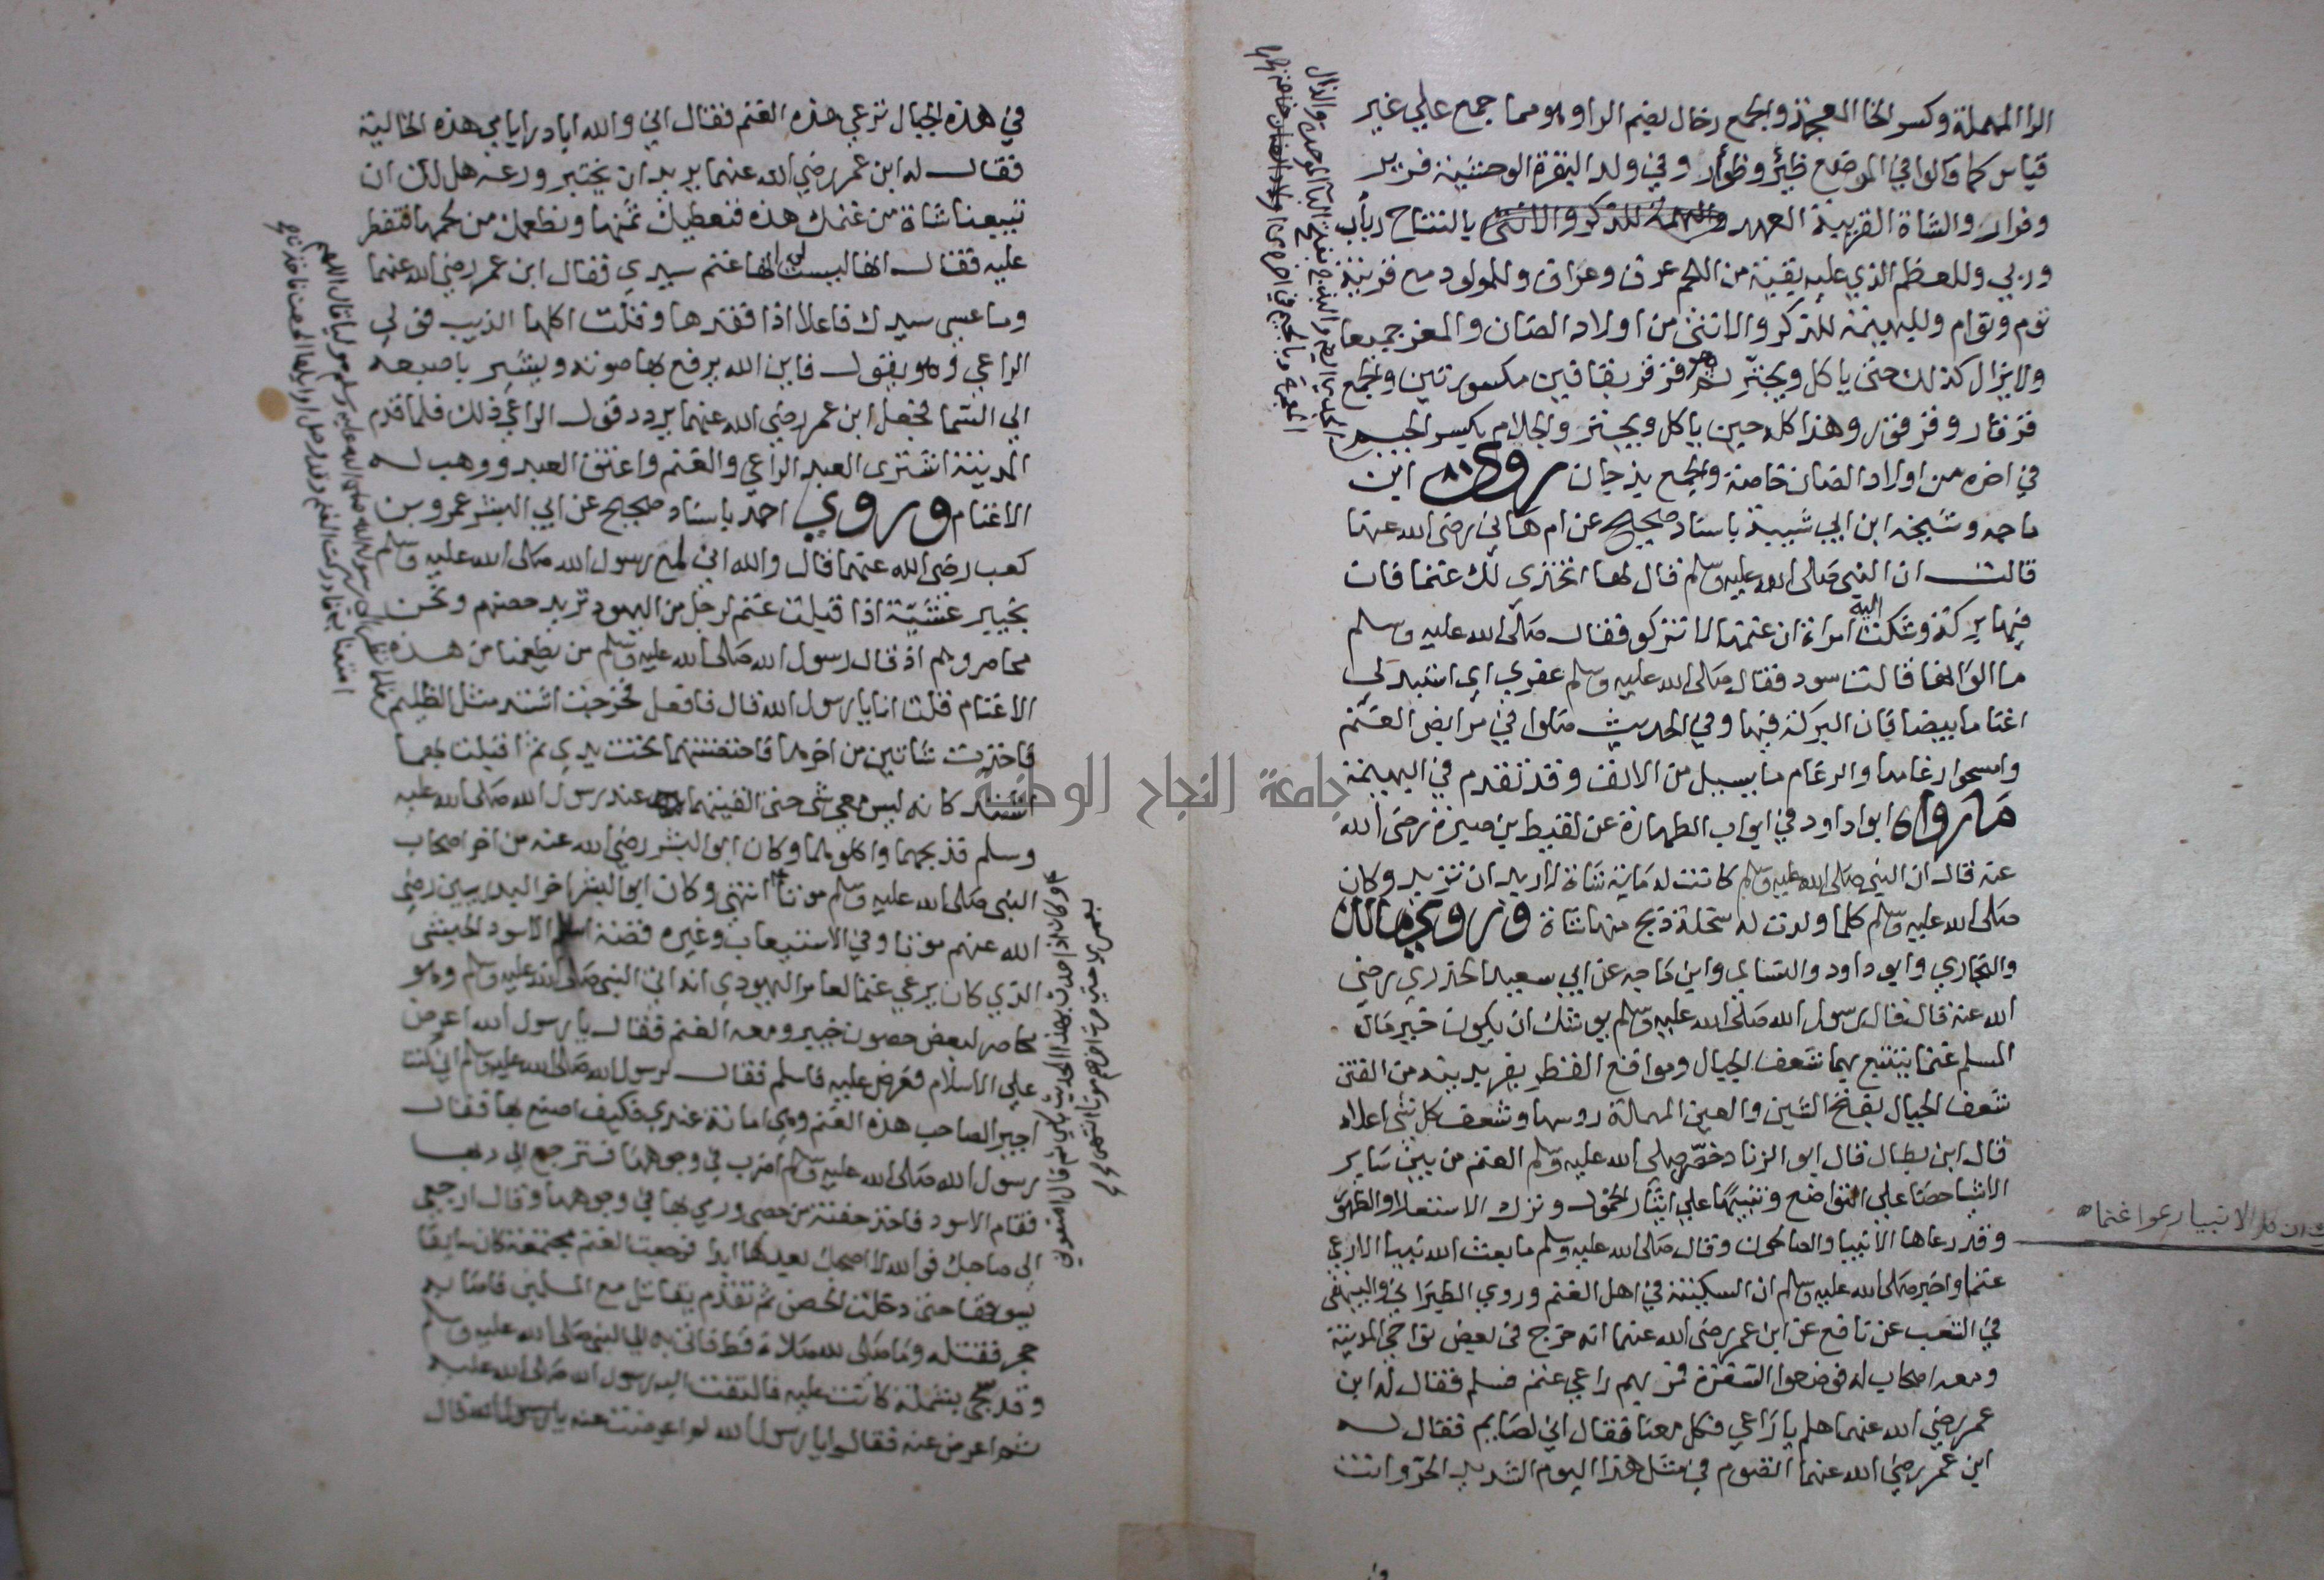 الرا المهملة وكسر الخا المعجمة والجمع رخال بضم الرا وهو مما جمع علي غير
قياس كما قالوا في المرضع ظئر وظوار وفي ولد البقرة الوحشية فرير
وفرار والشاة القريبة العهد بالنتاج ربأب
وربي وللعظم الذي عليه بقية من اللحم عرق وعراق وللمولود مع قرينه
توم وتوام وللبهيمة للذكر والانثى من اولاد الضان والمعز جميعا
ولا يزال كذلك حتى ياكل ويجتر ثم هو قرقر بقافين مكسورتين والجمع
قرقار وقرقور وهذا كله حين ياكل ويجتر والجلام بكسر الجيم
في اخره من اولاد الضان خاصة والجمع بذجان روى ابن
ماجه وشيخه ابن ابي شيبة باسناد صحيح عن ام هاني رضى الله عنها
قالت ان النبي صلى الله عليه وسلم قال لها اتخذى لك غنما فان
فيها بركة وشكت اليه امراة ان غنمها لا تزكو فقال صلى الله عليه وسلم
ما الوانها قالت سود فقال صلى الله عليه وسلم عفري اي استبدلي
اغناما بيضا فان البركة فيها وفي الحديث صلوا في مرابض الغنم
وامسحوا رغامها والرغام ما يسيل من الانف وقد تقدم في البهيمة
ما رواه ابو داود في ابواب الطهارة عن لقيط بن صبرة رضى الله
عنه قال ان النبي صلى الله عليه وسلم كانت له ماية شاة لا يريد ان تزيد وكان
صلى الله عليه وسلم كلما ولدت له سخلة ذبح منها شاة وروي مالك
والبخاري وابو داود والنساي وابن ماجه عن ابي سعيد الخدري رضي
الله عنه قال قال رسول الله صلى الله عليه وسلم يوشك ان يكون خير مال
المسلم غنما يتتبع بها شعف الجبال ومواقع القطر يفر بدينه من الفتن
شعف الجبال بفتح الشين والعين المهملة روسها وشعف كل شي اعلاه
قال ابن بطال قال ابو الزناد خص صلى الله عليه وسلم الغنم من بين ساير
الاشيا حضا على التواضع وتنبيها علي ايثار الخمول وترك الاستعلا والظهور
وقد رعاها الانبيا والصالحون وقال صلى الله عليه وسلم ما بعث الله نبيا الا راعي
غنم واخبر صلى الله عليه وسلم ان السكينة في اهل الغنم وروي الطبراني والبيهقى
في الشعب عن نافع عن ابن عمر رضى الله عنهما انه خرج في بعض نواحي المدينة
ومعه اصحاب له فوضعوا السفرة فمر بهم راعي غنم فسلم فقال له ابن
عمر رضي الله عنهما هلم يا راعي فكل معنا فقال اني لصايم فقال له
ابن عمر رضي الله عنهما اتصوم في مثل هذا اليوم الشديد الحر وانت
الانبيا رعوا غنما
في هذه الجبال ترعي هذه الغنم فقال اني والله ابادر ايامي هذه الخالية
فقال له ابن عمر رضي الله عنهما يريد ان يختبر ورعه هل لك ان
تبيعنا شاة من غنمك هذه فنعطيك ثمنها ونطعمك من لحمها فتفطر
عليه فقال انها ليست لي انها غنم سيدي فقال ابن عمر رضي الله عنهما
وما عسى سيدك فاعلا اذا فقدها وقلت اكلها الذيب فولي
الراعي وهو يقول فاين الله يرفع بها صوته ويشير باصبعه
الي السما فجعل ابن عمر رضي الله عنهما يردد قول الراعي ذلك فلما قدم
المدينة اشترى العبد الراعي والغنم واعتق العبد ووهب له
الاغنام وروي احمد باسناد صحيح عن ابي اليسر عمرو بن
كعب رضى الله عنهما قال والله اني لمع رسول الله صلى الله عليه وسلم
بخيبر عشية اذا قبلت غنم لرجل من اليهود تريد حصنهم ونحن
محاصروهم اذ قال رسول الله صلى الله عليه وسلم من يطعمنا من هذه
الاغنام قلت انا يا رسول الله قال فافعل فخرجت اشتد مثل الظليم
فاخذت شاتين من اخرها فاحتضنتهما تحت يدي ثم اقبلت بهما
اشتد كانه ليس معي شى حتى القيتهما عند رسول الله صلى الله عليه
وسلم فذبحهما واكلوهما وكان ابو اليسر رضي الله عنه من اخر اصحاب
النبي صلى الله عليه وسلم موتا انتهى وكان ابو اليسر اخر البدريين رضي
الله عنهم موتا وفي الاستيعاب وغيره قصة اسلم الاسود الحبشى
الذي كان يرعي غنما لعامر اليهودي انه اتي النبي صلى الله عليه وسلم وهو
محاصر لبعض حصون خيبر ومعه الغنم فقال يا رسول الله اعرض
علي الاسلام فعرض عليه فاسلم فقال لرسول الله صلى الله عليه وسلم اني كنت
اجيرا لصاحب هذه الغنم وهي امانة عندي فكيف اصنع بها فقال
رسول الله صلى الله عليه وسلم اضرب في وجوهها فسترجع الى ربها
فقام الاسود فاخذ حفنة من حصى ورمي بها في وجوهها وقال ارجعي
الى صاحبك فو الله لا اصحبك بعدها ابدا فرجعت الغنم مجتمعة كان سايقا
يسوقها حتى دخلت الحصن ثم تقدم يقاتل مع المسلمين فاصابه
حجر فقتله وما صلى لله صلاة قط فاتى به الى النبي صلى الله عليه وسلم
وقد سجي بشملة كانت عليه فالتفت اليه رسول الله صلى الله عليه
ثم اعرض عنه فقالوا يا رسول الله لم اعرضت عنه قال
جامعة النجاح الوطنية